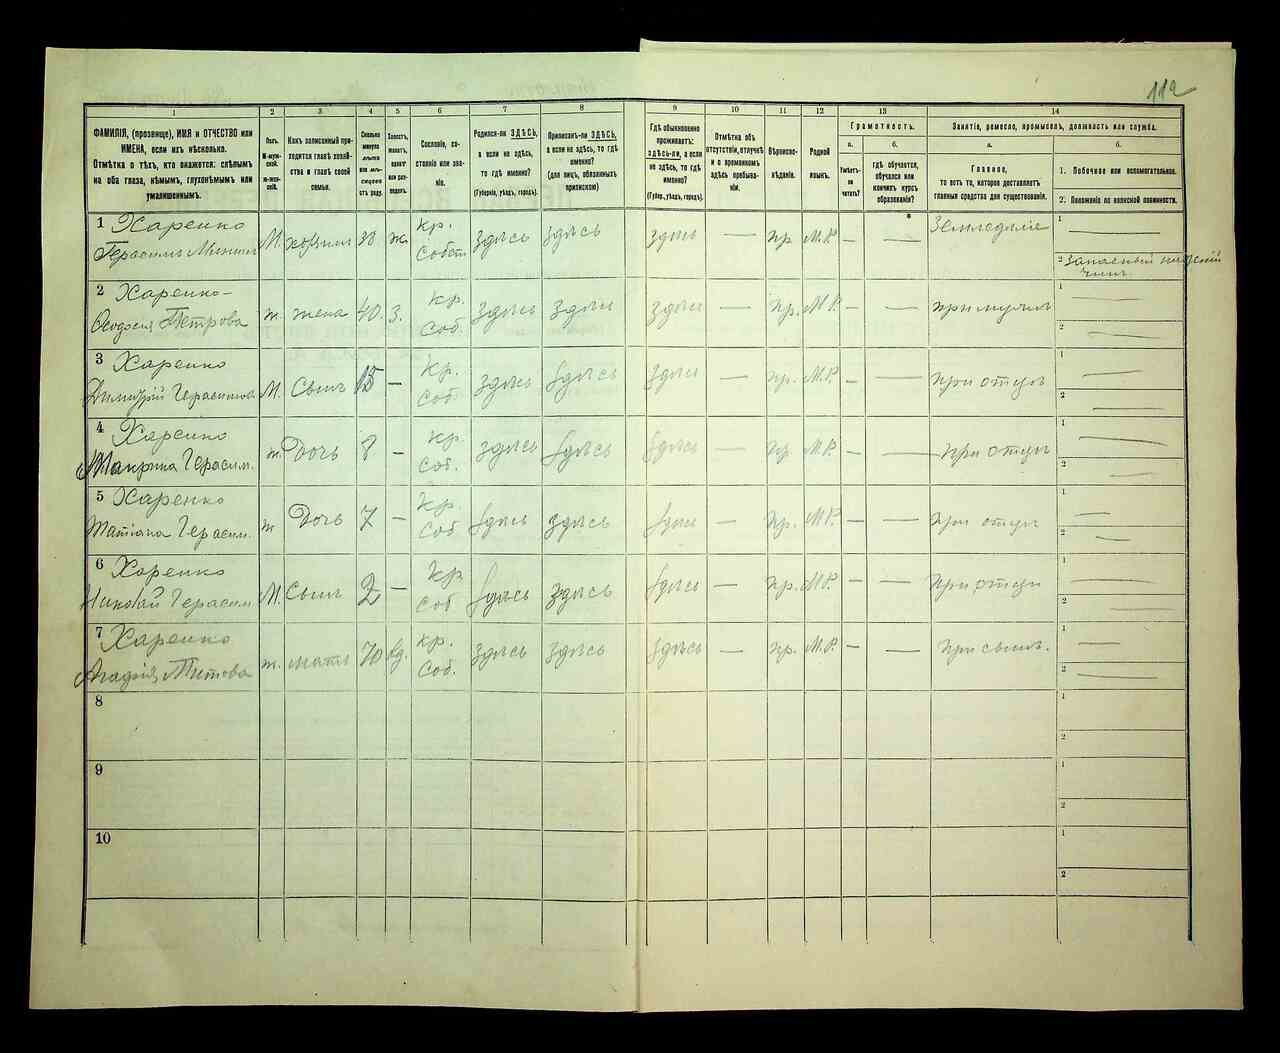 112
1 2 3 4 5 6 7 8 9 10 11 12 13 14
ФАМИЛІЯ, (прозвище), ИМЯ и ОТЧЕСТВО или
ИМЕНА, если ихъ нѣсколько.
Отмѣтка о тѣхъ, кто окажется: слѣпымъ
на оба глаза, нѣмымъ, глухонѣмымъ или
умалишеннымъ.
Полъ.
М-мужской.
ж-женскій.
Какъ записанный при-
ходится главѣ хозяй-
ства и главѣ своей
семьи.
Сколько
минуло
лѣтъ
или мѣ-
сяцевъ
отъ роду.
Холостъ,
женатъ,
вдовъ
или раз-
веденъ.
Сословіе, со-
стояніе или зва-
ніе.
Родился-ли ЗДѢСЬ,
а если не здѣсь,
то гдѣ именно?
(Губернія, уѣздъ, городъ).
Приписанъ-ли ЗДѢСЬ,
а если не здѣсь, то гдѣ
именно?
(для лицъ, обязанныхъ
припискою)
Гдѣ обыкновенно
проживаетъ:
здѣсь-ли, а если
не здѣсь, то гдѣ
именно?
(Губер., уѣздъ, городъ).
Отмѣтка объ
отсутствіи, отлучкѣ
и о временномъ
здѣсь пребыва-
ніи.
Вѣроиспо-
вѣданіе.
Родной
языкъ.
Грамотность.
а.
Умѣетъ-ли
читать?
б.
гдѣ обучается,
обучался или
кончилъ курсъ
образованія?
Занятіе, ремесло, промыселъ, должность или служба.
а.
Главное,
то есть то, которое доставляетъ
главныя средства для существованія.
б.
1. Побочное или вспомогательное.
2. Положеніе по воинской повинности.
1 Харенко М. хозяинъ 38 ж. кр. здѣсь здѣсь здѣсь — пр. М.Р. — — Земледѣліе 1 —
Герасимъ Собст. 2 Запасный нижній
чинъ
2 Харенко- ж. жена 40. З. кр. здѣсь здѣсь здѣсь — пр. М.Р. — — при мужѣ 1 —
Петрова соб. 2 —
3 Харенко М. Сынъ 15 — кр. здѣсь здѣсь здѣсь — пр. М.Р. — — при отцѣ 1 —
Димитрій Герасимов соб. 2 —
4 Харенко ж. Дочь 8 — кр. здѣсь здѣсь здѣсь — пр. М.Р. — — при отцѣ 1 —
Макрина Герасим. соб. 2 —
5 Харенко ж Дочь 7 — кр. здѣсь здѣсь здѣсь — пр. М.Р. — — при отцѣ 1 —
Татіана Герасим. соб 2 —
6 Харенко М. Сынъ 2 — кр здѣсь здѣсь здѣсь — пр. М.Р. — — при отцѣ 1 —
Николай Герасим соб 2 —
7 Харенко ж. мать 70 вд. кр. здѣсь здѣсь здѣсь — пр. М.Р. — — при сынѣ. 1 —
Агафія Титова Соб. 2 —
8 1
2
9 1
2
10 1
2